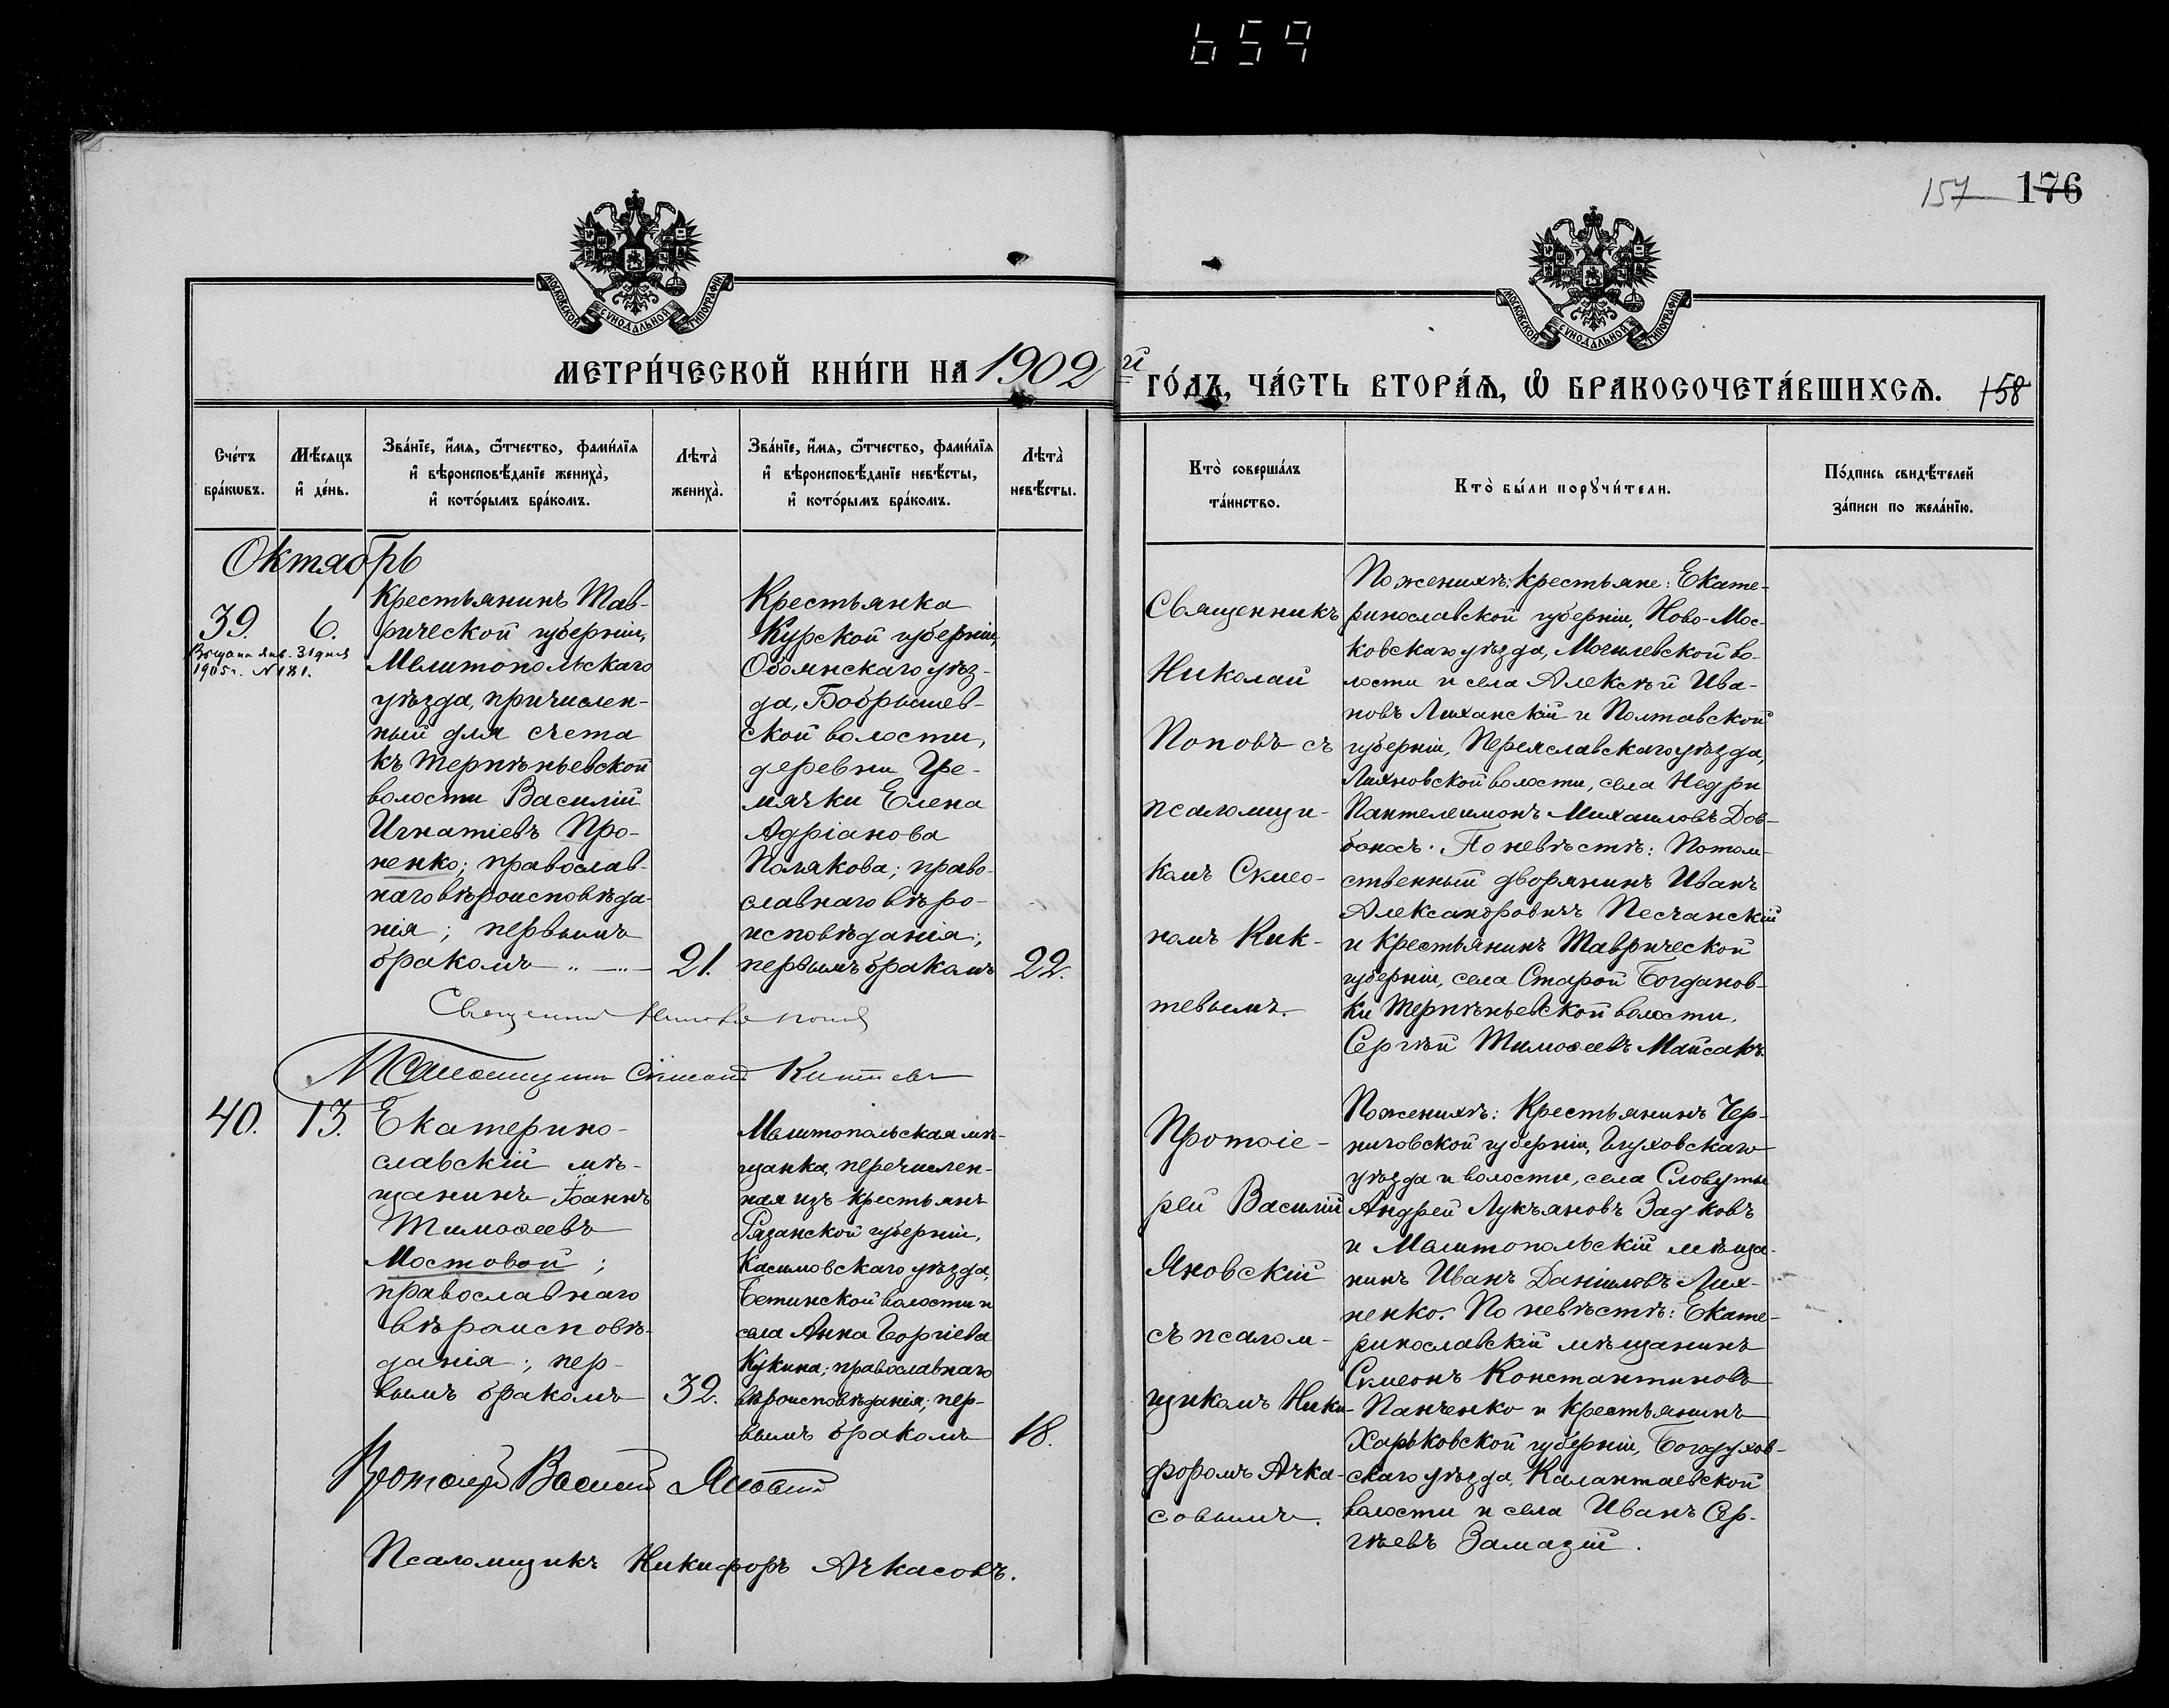 659
157 176
МОСКОВСКОЙ СѴНОДАЛЬНОЙ ТИПОГРАФІИ
МОСКОВСКОЙ СѴНОДАЛЬНОЙ ТИПОГРАФІИ
МЕТРИ́ЧЕСКОЙ КНИ́ГИ НА 1902 й ГО́ДЪ, ЧА́СТЬ ВТОРА́Ѧ, Ѽ БРАКОСОЧЕТА́ВШИХСѦ. 158
Сче́тъ
бра́кѡвъ.
Мѣ́сяцъ
и҆ де́нь.
Зва́нїе, и҆́мя, ѻ҆́тчество, фами́лїя
и҆ вѣроисповѣ́данїе жениха̀,
и҆ кото́рымъ бра́комъ.
Лѣта̀
жениха̀.
Зва́нїе, и҆́мя, ѻ҆́тчество, фами́лїя
и҆ вѣроисповѣ́данїе невѣ́сты,
и҆ кото́рымъ бра́комъ.
Лѣта̀
невѣ́сты.
Кто̀ соверша́лъ
та́инство.
Кто̀ бы́ли порꙋчи́тели.
По́дпись свидѣ́телей
за́писи по жела́нїю.
Октябрь
39. 6.
Выдана янв. 31 дня
1905 г. № 181.
Крестьянинъ Тав-
рической губерніи,
Мелитопольскаго
уѣзда, причислен-
ный для счета
къ Терпѣньевской
волости Василій
Игнатіевъ Про-
ненко; православ-
наго вѣроисповѣда-
нія; первымъ
бракомъ
21.
Крестьянка
Курской губерніи,
Обоянскаго уѣз-
да, Бобрышев-
ской волости,
деревни Гре-
мячки Елена
Адріанова
Полякова; право-
славнаго вѣро-
исповѣданія;
первымъ бракомъ
22.
Священникъ
Николай
Поповъ съ
псаломщи-
комъ Симео-
номъ Кик-
тевымъ.
По женихѣ: крестьяне: Екате-
ринославской губерніи, Ново-Мос-
ковскаго уѣзда, Могилевской во-
лости и села Алексѣй Ива-
новъ Лиханскій и Полтавской
губерніи, Переяславскаго уѣзда,
волости, села Недри
Пантелеимонъ Михаиловъ Дов-
боносъ. По невѣстѣ: Потом-
ственный дворянинъ Иванъ
Александровичъ Песчанскій
и крестьянинъ Таврической
губерніи, села Старой Богданов-
ки Терпѣньевской волости,
Сергѣй Тимоѳеевъ Майсакъ.
Священникъ Николай Поповъ
Псаломщикъ Симеонъ Киктевъ
40. 13.
Екатерино-
славскій мѣ-
щанинъ Іоаннъ
Тимоѳеевъ
Мостовой;
православнаго
вѣроисповѣ-
данія; пер-
вымъ бракомъ
32.
Мелитопольская мѣ-
щанка, перечислен-
ная изъ крестьянъ
Рязанской губерніи,
Касимовскаго уѣзда,
Бетинской волости и
села Анна Георгіева
Кукина; православнаго
вѣроисповѣданія; пер-
вымъ бракомъ
18.
Протоіе-
рей Василій
Яновскій
съ псалом-
щикомъ Ники-
форомъ Ачка-
совымъ.
По женихѣ: Крестьянинъ Чер-
ниговской губерніи, Глуховскаго
уѣзда и волости, села Словути
Андрей Лукьяновъ Задковъ
и Мелитопольскій мѣща-
нинъ Иванъ Даніиловъ Лих-
ненко. По невѣстѣ: Екате-
ринославскій мѣщанинъ
Симеонъ Константиновъ
Панченко и крестьянинъ
Харьковской губерніи, Богодухов-
скаго уѣзда, Калантаевской
волости и села Иванъ Сер-
гѣевъ Замазій.
Протоіерей Василій Яновскій
Псаломщикъ Никифоръ Ачкасовъ.